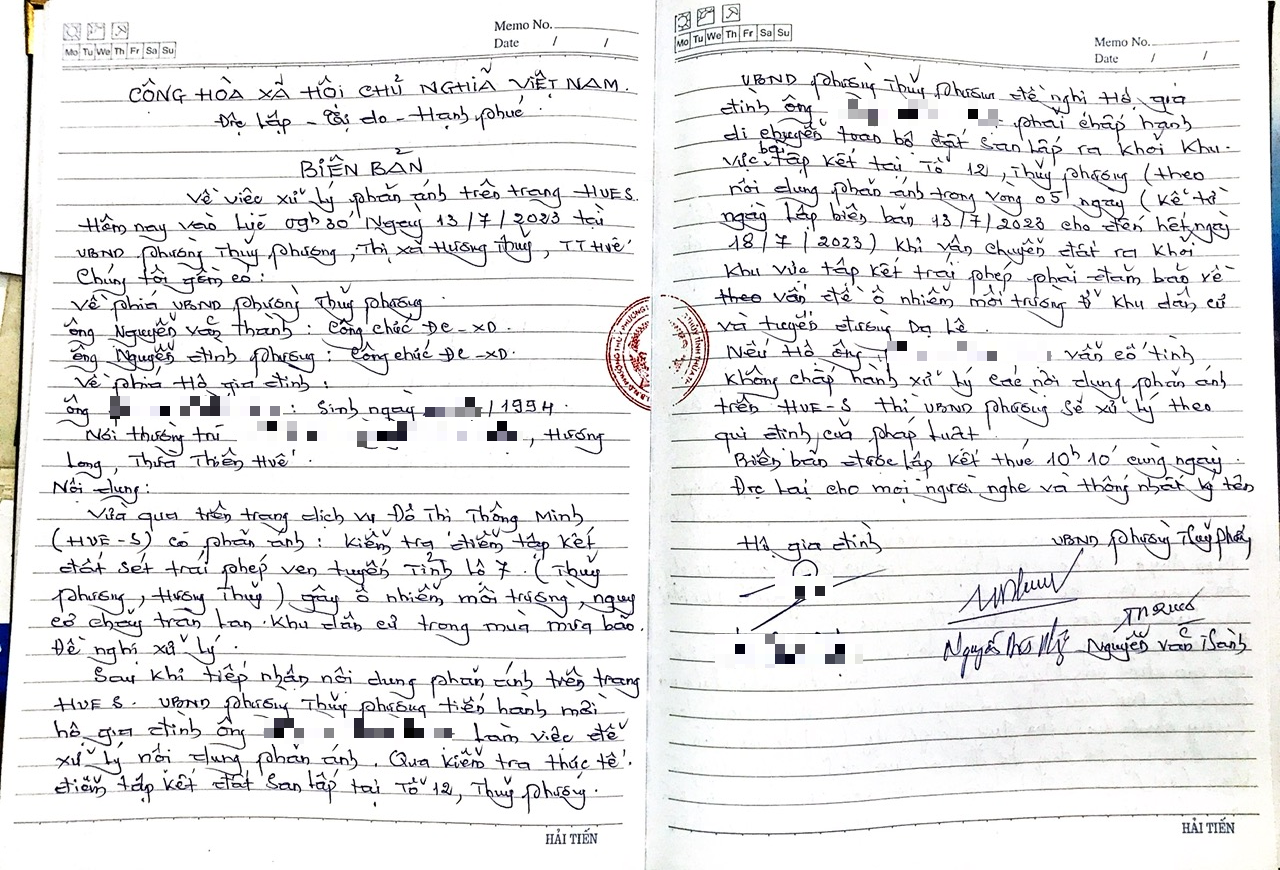 Memo No.
Date / /
Mo Tu We Th Fr Sa Su
CỘNG HÒA XÃ HỘI CHỦ NGHĨA VIỆT NAM.
Độc lập - Tự do - Hạnh phúc.
BIÊN BẢN
Về việc xử lý phản ánh trên trang HUE S.
Hôm nay vào lúc 09h30' Ngày 13/7/2023 tại
UBND phường Thuỷ phương, Thị xã Hương Thuỷ, TT Huế
Chúng tôi gồm có:
Về phía UBND phường Thuỷ phương.
ông Nguyễn Văn Thành: Công chức ĐC-XD.
ông Nguyễn đình phương: Công chức ĐC-XD.
Về phía Hộ gia đình:
ông : Sinh ngày /1994.
Nơi thường trú , Hương
Long, Thừa Thiên Huế.
Nội dung:
Vừa qua trên trang dịch vụ Đô Thị Thông Minh
(HUE-S) có phản ánh: kiểm tra điểm tập kết
đất sét trái phép ven tuyến Tỉnh lộ 7. (Thuỷ
phương, Hương Thuỷ) gây ô nhiễm môi trường, nguy
cơ chảy tràn lan. Khu dân cư trong mùa mưa bão.
Đề nghị xử lý.
Sau khi tiếp nhận nội dung phản ánh trên trang
HUE S. UBND phường Thuỷ phương tiến hành mời
hộ gia đình ông Làm việc để
xử lý nội dung phản ánh. Qua kiểm tra thực tế.
điểm tập kết đất san lấp tại Tổ 12, Thuỷ phương.
HẢI TIẾN
Memo No.
Date / /
Mo Tu We Th Fr Sa Su
UBND phường Thuỷ phương đề nghị Hộ gia
đình ông phải chấp hành
di chuyển toàn bộ đất san lấp ra khỏi khu.
vực bãi tập kết tại Tổ 12, Thuỷ phương (theo
nội dung phản ánh trong vòng 05 ngày (kể từ
ngày lập biên bản 13/7/2023 cho đến hết ngày
18/7/2023) khi vận chuyển đất ra khỏi
khu vực tập kết trái phép phải đảm bảo về
theo vấn đề ô nhiễm môi trường ở khu dân cư
và tuyến đường Dạ Lê.
Nếu Hộ ông vẫn cố tình
không chấp hành xử lý các nội dung phản ánh
trên HUE-S thì UBND phường sẽ xử lý theo
qui định của pháp luật.
Biên bản được lập kết thúc 10h10' cùng ngày.
Đọc lại cho mọi người nghe và thống nhất ký tên
Hộ gia đình UBND phường Thuỷ phương
Nguyễn Văn Thành
HẢI TIẾN